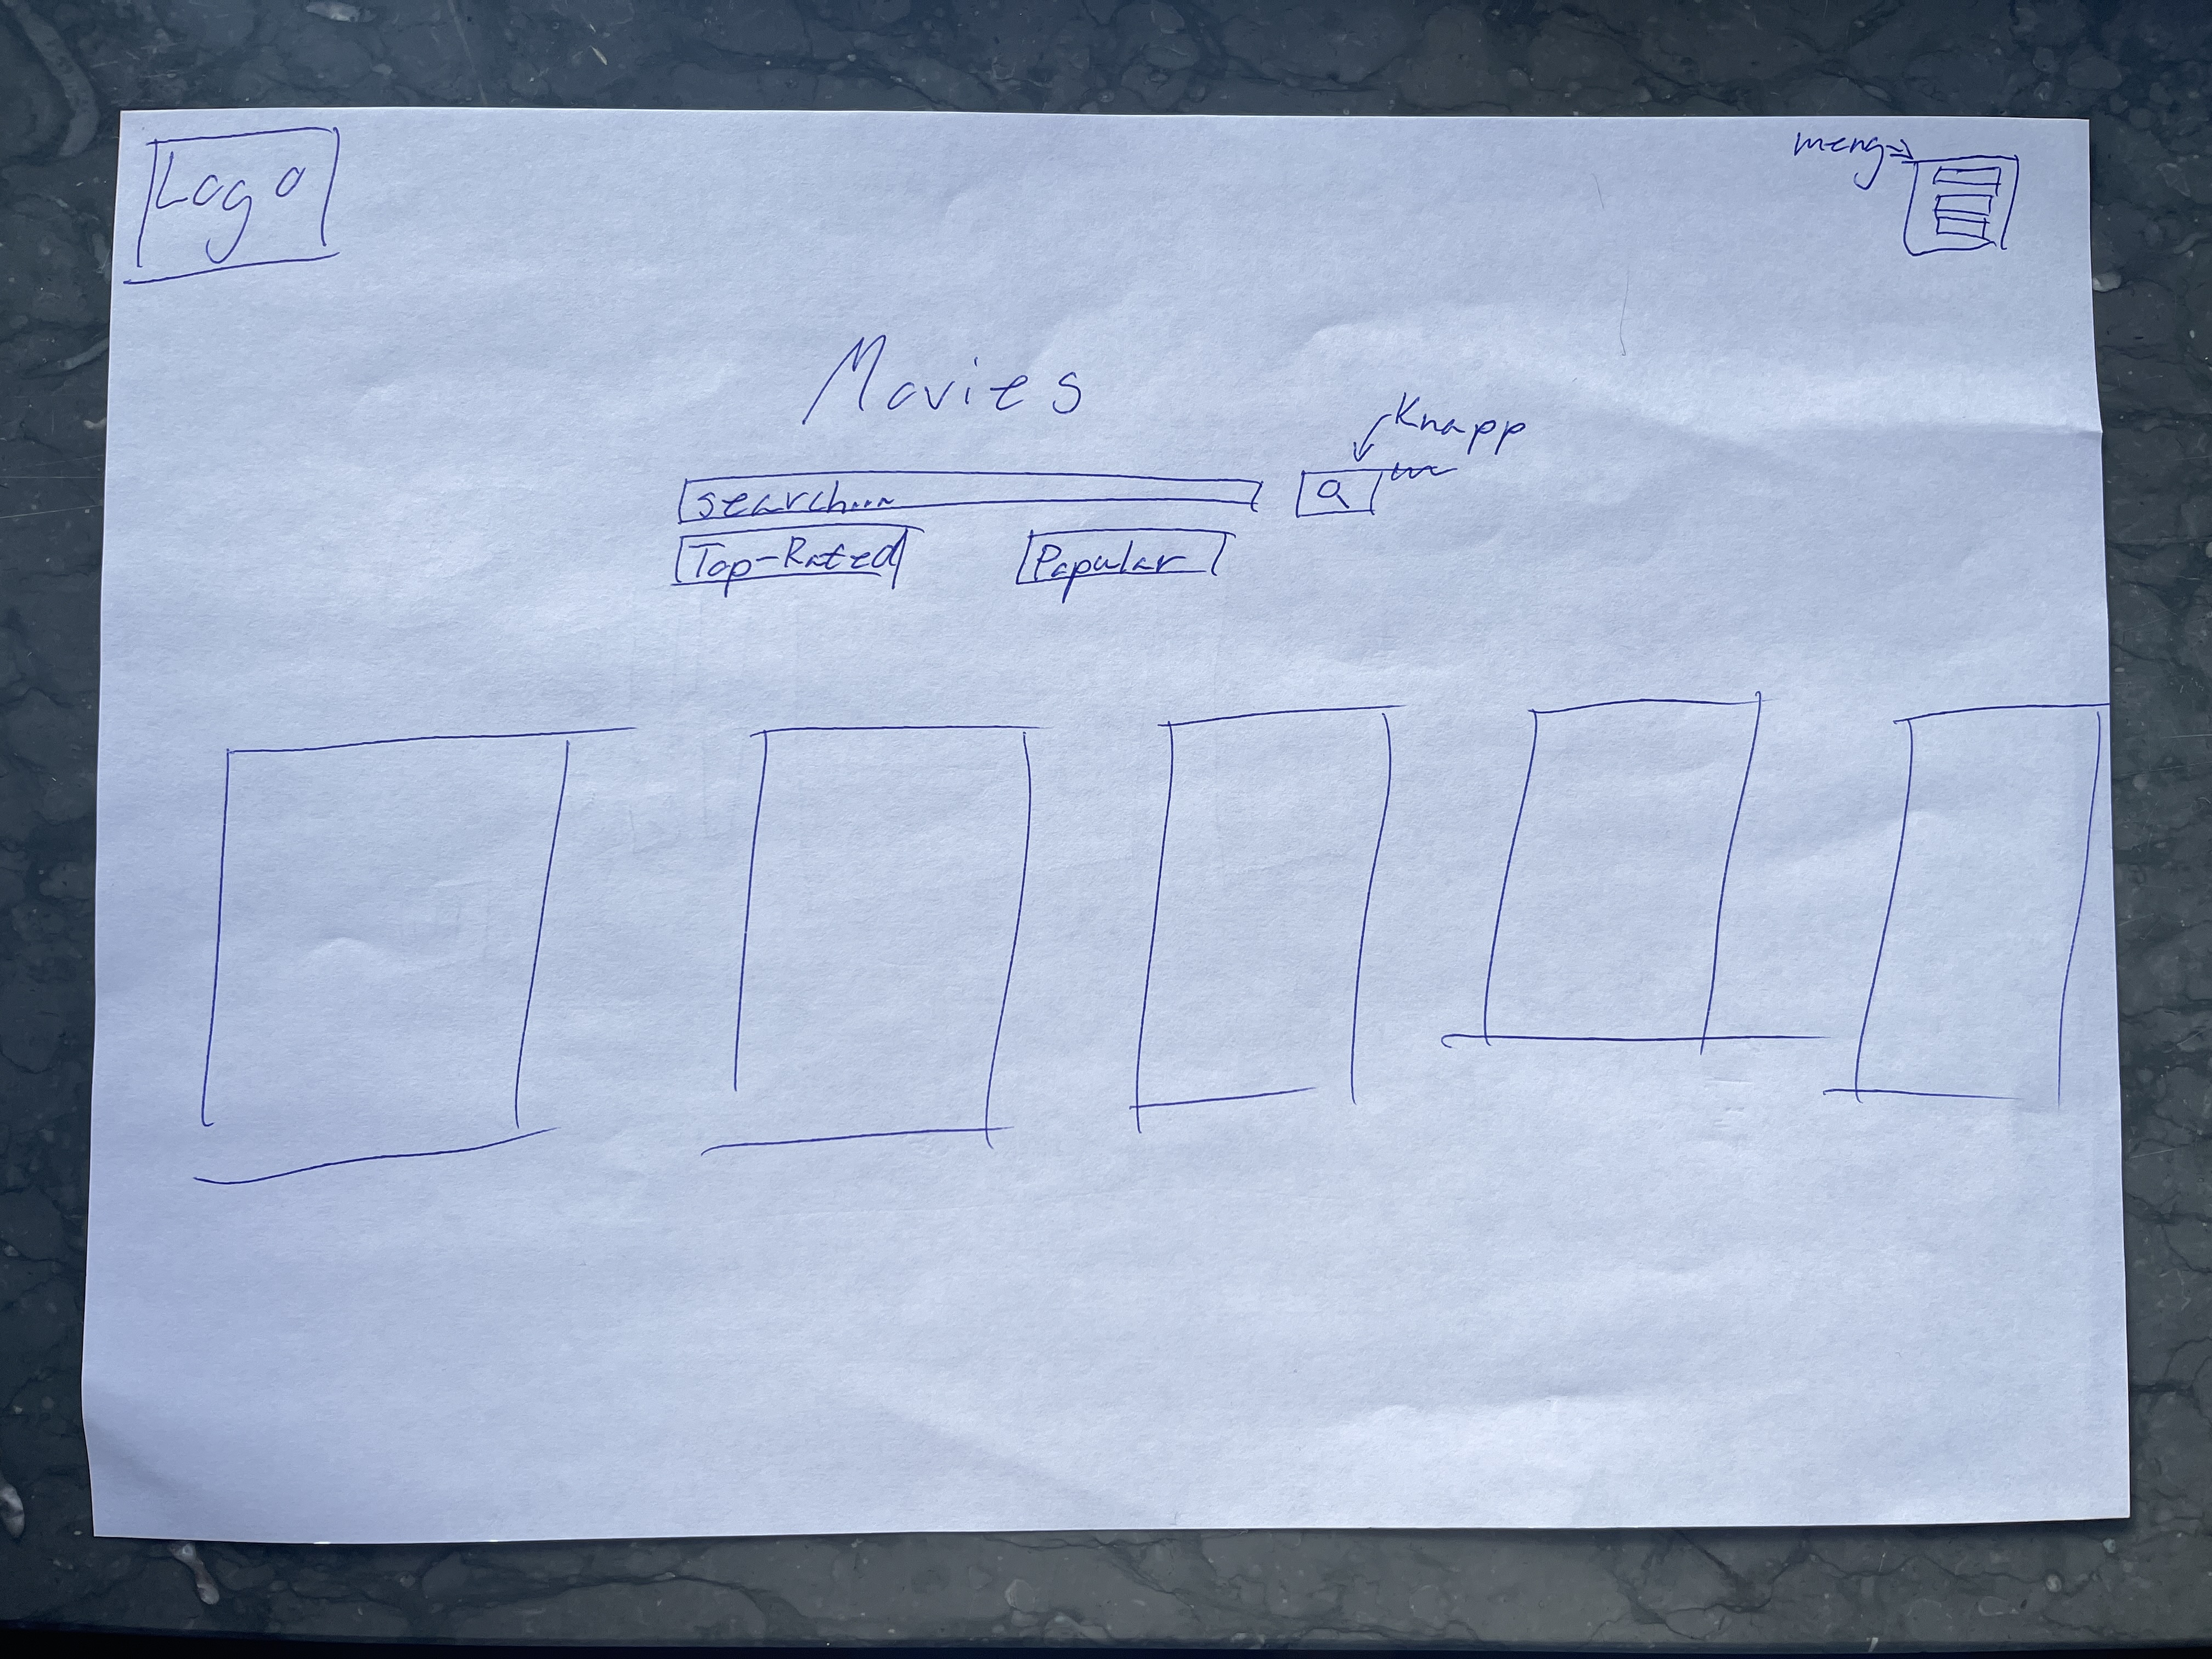 Logo
meny
Movies
Knapp
search...
Top-Rated
Popular